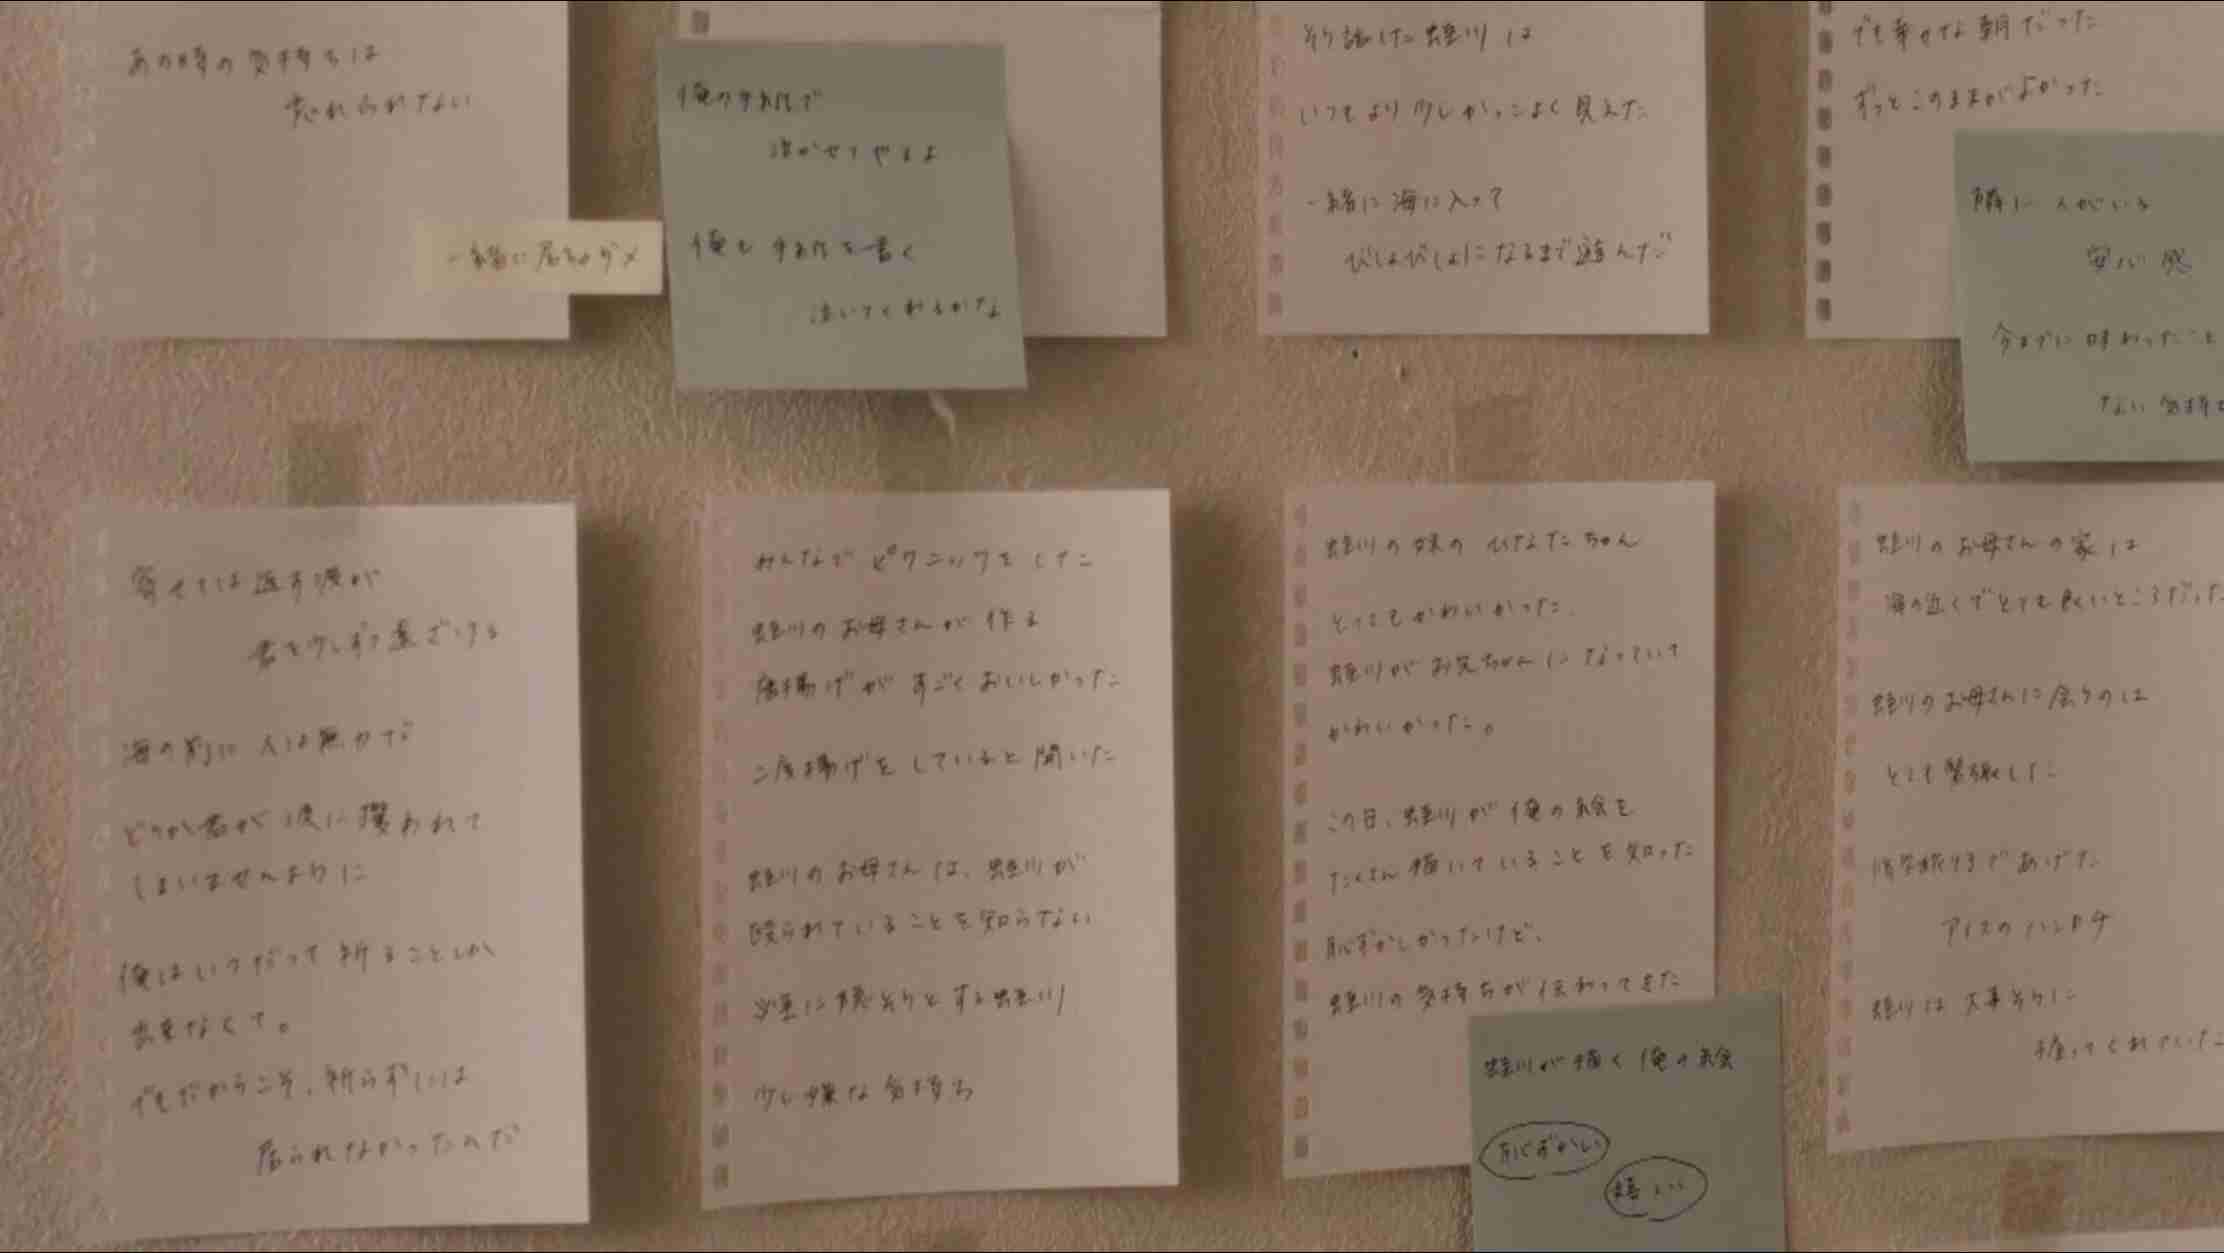 あの時の気持ちは
忘れられない
一緒に居ちゃダメ
俺の手紙で
泣かせてやるよ
俺も手紙を書く
泣いてくれるかな
そう話した蛭川は
いつもより少しかっこよく見えた
一緒に海に入って
びしょびしょになるまで遊んだ
でも幸せな朝だった
ずっとこのままがよかった
隣に人がいる
安心感
今までに味わったこと
ない気持ち
寄せては返す波が
君を少しずつ遠ざける
海の前に人は無力だ
どうか君が波に攫われて
しまいませんように
俺はいつだって祈ることしか
出来なくて。
でもだからこそ、祈らずには
居られなかったのだ
みんなでピクニックをした
蛭川のお母さんが作る
唐揚げがすごくおいしかった
二度揚げをしていると聞いた
蛭川のお母さんは、蛭川が
殴られていることを知らない
必至に隠そうとする蛭川
少し嫌な気持ち
蛭川の妹のひなたちゃん
とってもかわいかった
蛭川がお兄ちゃんになっていて
かわいかった。
この日、蛭川が俺の絵を
たくさん描いていることを知った
恥ずかしかったけど、
蛭川の気持ちが伝わってきた
蛭川が描く俺の絵
恥ずかしい
嬉しい
蛭川のお母さんの家は
海の近くでとても良いところだった
蛭川のお母さんに会うのは
とても緊張した
修学旅行であげた
アイスのハンカチ
蛭川は大事そうに
使ってくれていた